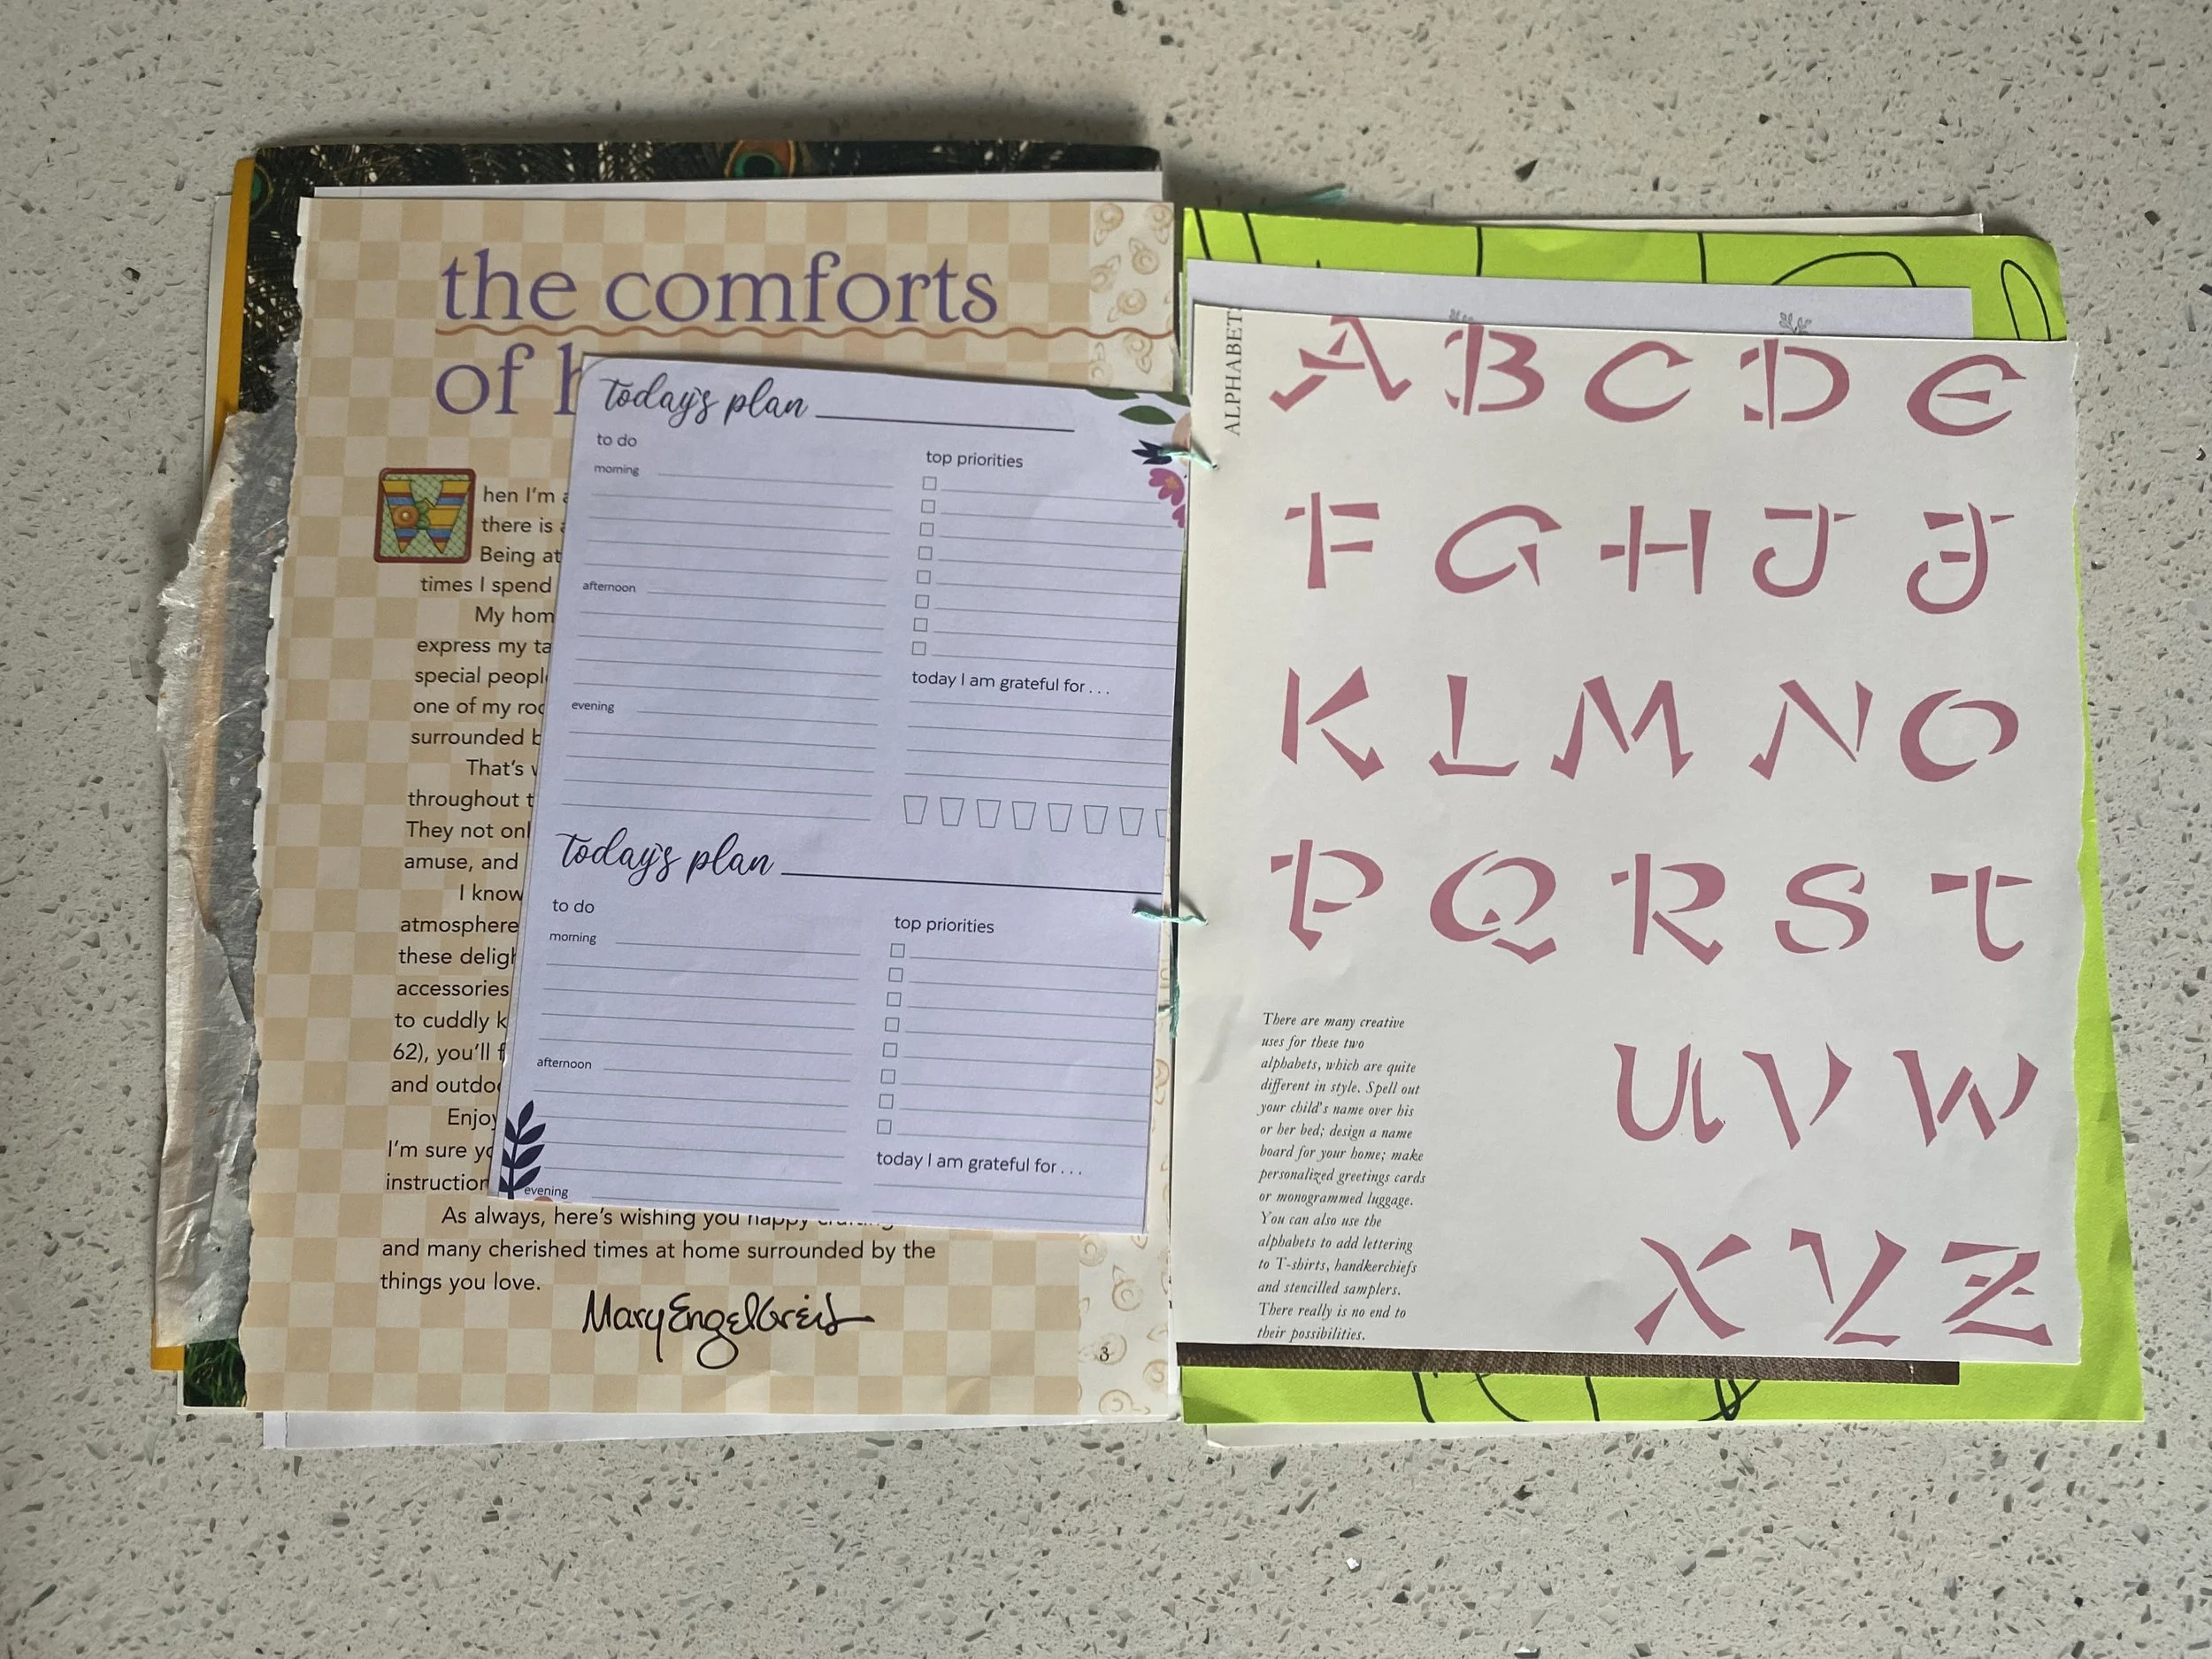 the comforts
of h
W
hen I'm a
there is a
Being at
times I spend
My hom
express my ta
special people
one of my roo
surrounded b
That's w
throughout t
They not onl
amuse, and
I know
atmosphere
these deligh
accessories
to cuddly k
62), you'll f
and outdoo
Enjoy
I'm sure yo
instruction
As always, here's wishing you happy
and many cherished times at home surrounded by the
things you love.
Mary Engelbreit
3
today's plan
to do
morning
afternoon
evening
top priorities
today I am grateful for . . .
today's plan
to do
morning
afternoon
evening
top priorities
today I am grateful for . . .
ALPHABET
A B C D E
F G H J J
K L M N O
P Q R S T
U V W
X Y Z
There are many creative
uses for these two
alphabets, which are quite
different in style. Spell out
your child's name over his
or her bed; design a name
board for your home; make
personalized greetings cards
or monogrammed luggage.
You can also use the
alphabets to add lettering
to T-shirts, handkerchiefs
and stencilled samplers.
There really is no end to
their possibilities.